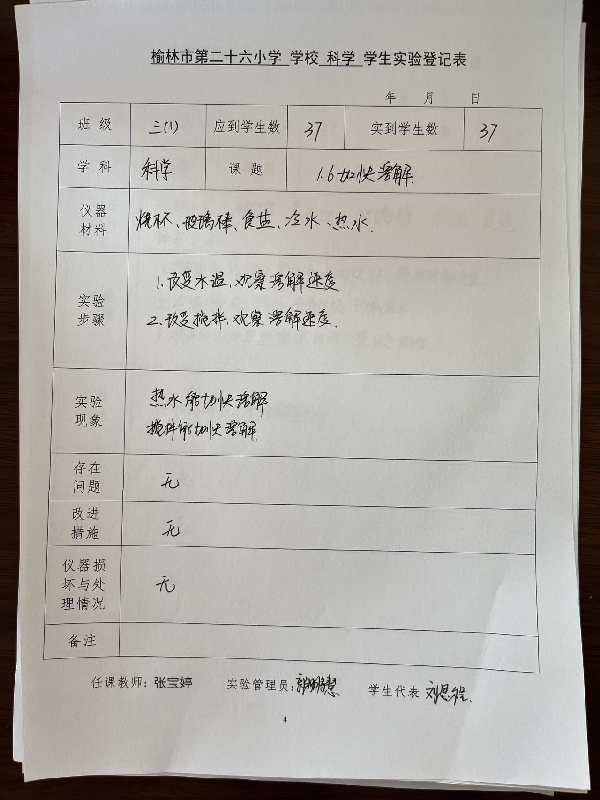 榆林市第二十六小学 学校 科学 学生实验登记表
年 月 日
班 级 三(1) 应到学生数 37 实到学生数 37
学 科 科学 课 题 1.6加快溶解
仪器材料 烧杯、玻璃棒、食盐、冷水、热水.
实验步骤 1.改变水温、观察溶解速度
2.改变搅拌、观察溶解速度.
实验现象 热水能加快溶解
搅拌能加快溶解
存在问题 无
改进措施 无
仪器损坏与处理情况 无
备注
任课教师: 张宝婷 实验管理员: 学生代表 刘思程.
4